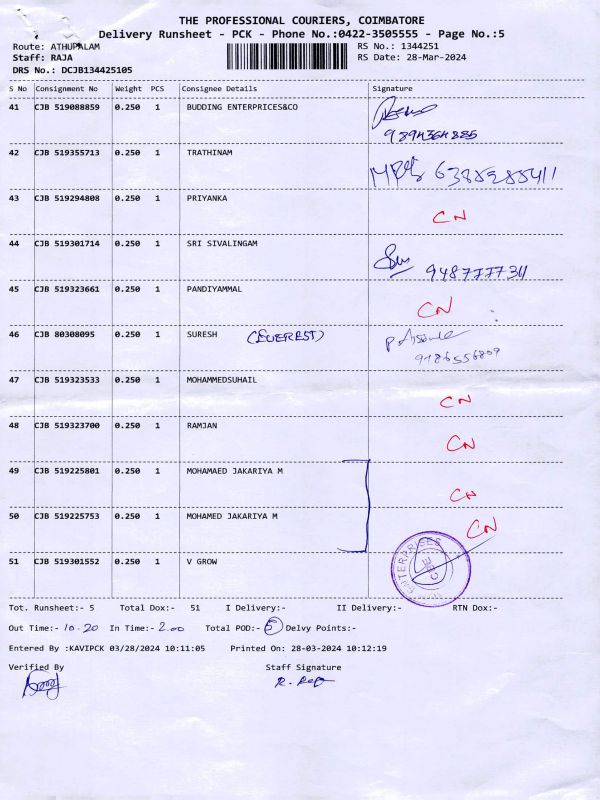 THE PROFESSIONAL COURIERS, COIMBATORE
Delivery Runsheet - PCK - Phone No.:0422-3505555 - Page No.:5
Route: ATHUPALAM RS No.: 1344251
Staff: RAJA RS Date: 28-Mar-2024
DRS No.: DCJB134425105
S No Consignment No Weight PCS Consignee Details Signature
41 CJB 519088859 0.250 1 BUDDING ENTERPRICES&CO
9894364885
42 CJB 519355713 0.250 1 TRATHINAM 6385285411
43 CJB 519294808 0.250 1 PRIYANKA CN
44 CJB 519301714 0.250 1 SRI SIVALINGAM
45 CJB 519323661 0.250 1 PANDIYAMMAL CN
46 CJB 80308095 0.250 1 SURESH (EVEREST)
47 CJB 519323533 0.250 1 MOHAMMEDSUHAIL CN
48 CJB 519323700 0.250 1 RAMJAN CN
49 CJB 519225801 0.250 1 MOHAMAED JAKARIYA M CN
50 CJB 519225753 0.250 1 MOHAMED JAKARIYA M CN
51 CJB 519301552 0.250 1 V GROW
Tot. Runsheet:- 5 Total Dox:- 51 I Delivery:- II Delivery:- RTN Dox:-
Out Time:- 10.20 In Time:- 2.00 Total POD:- 5 Delvy Points:-
Entered By :KAVIPCK 03/28/2024 10:11:05 Printed On: 28-03-2024 10:12:19
Verified By Staff Signature